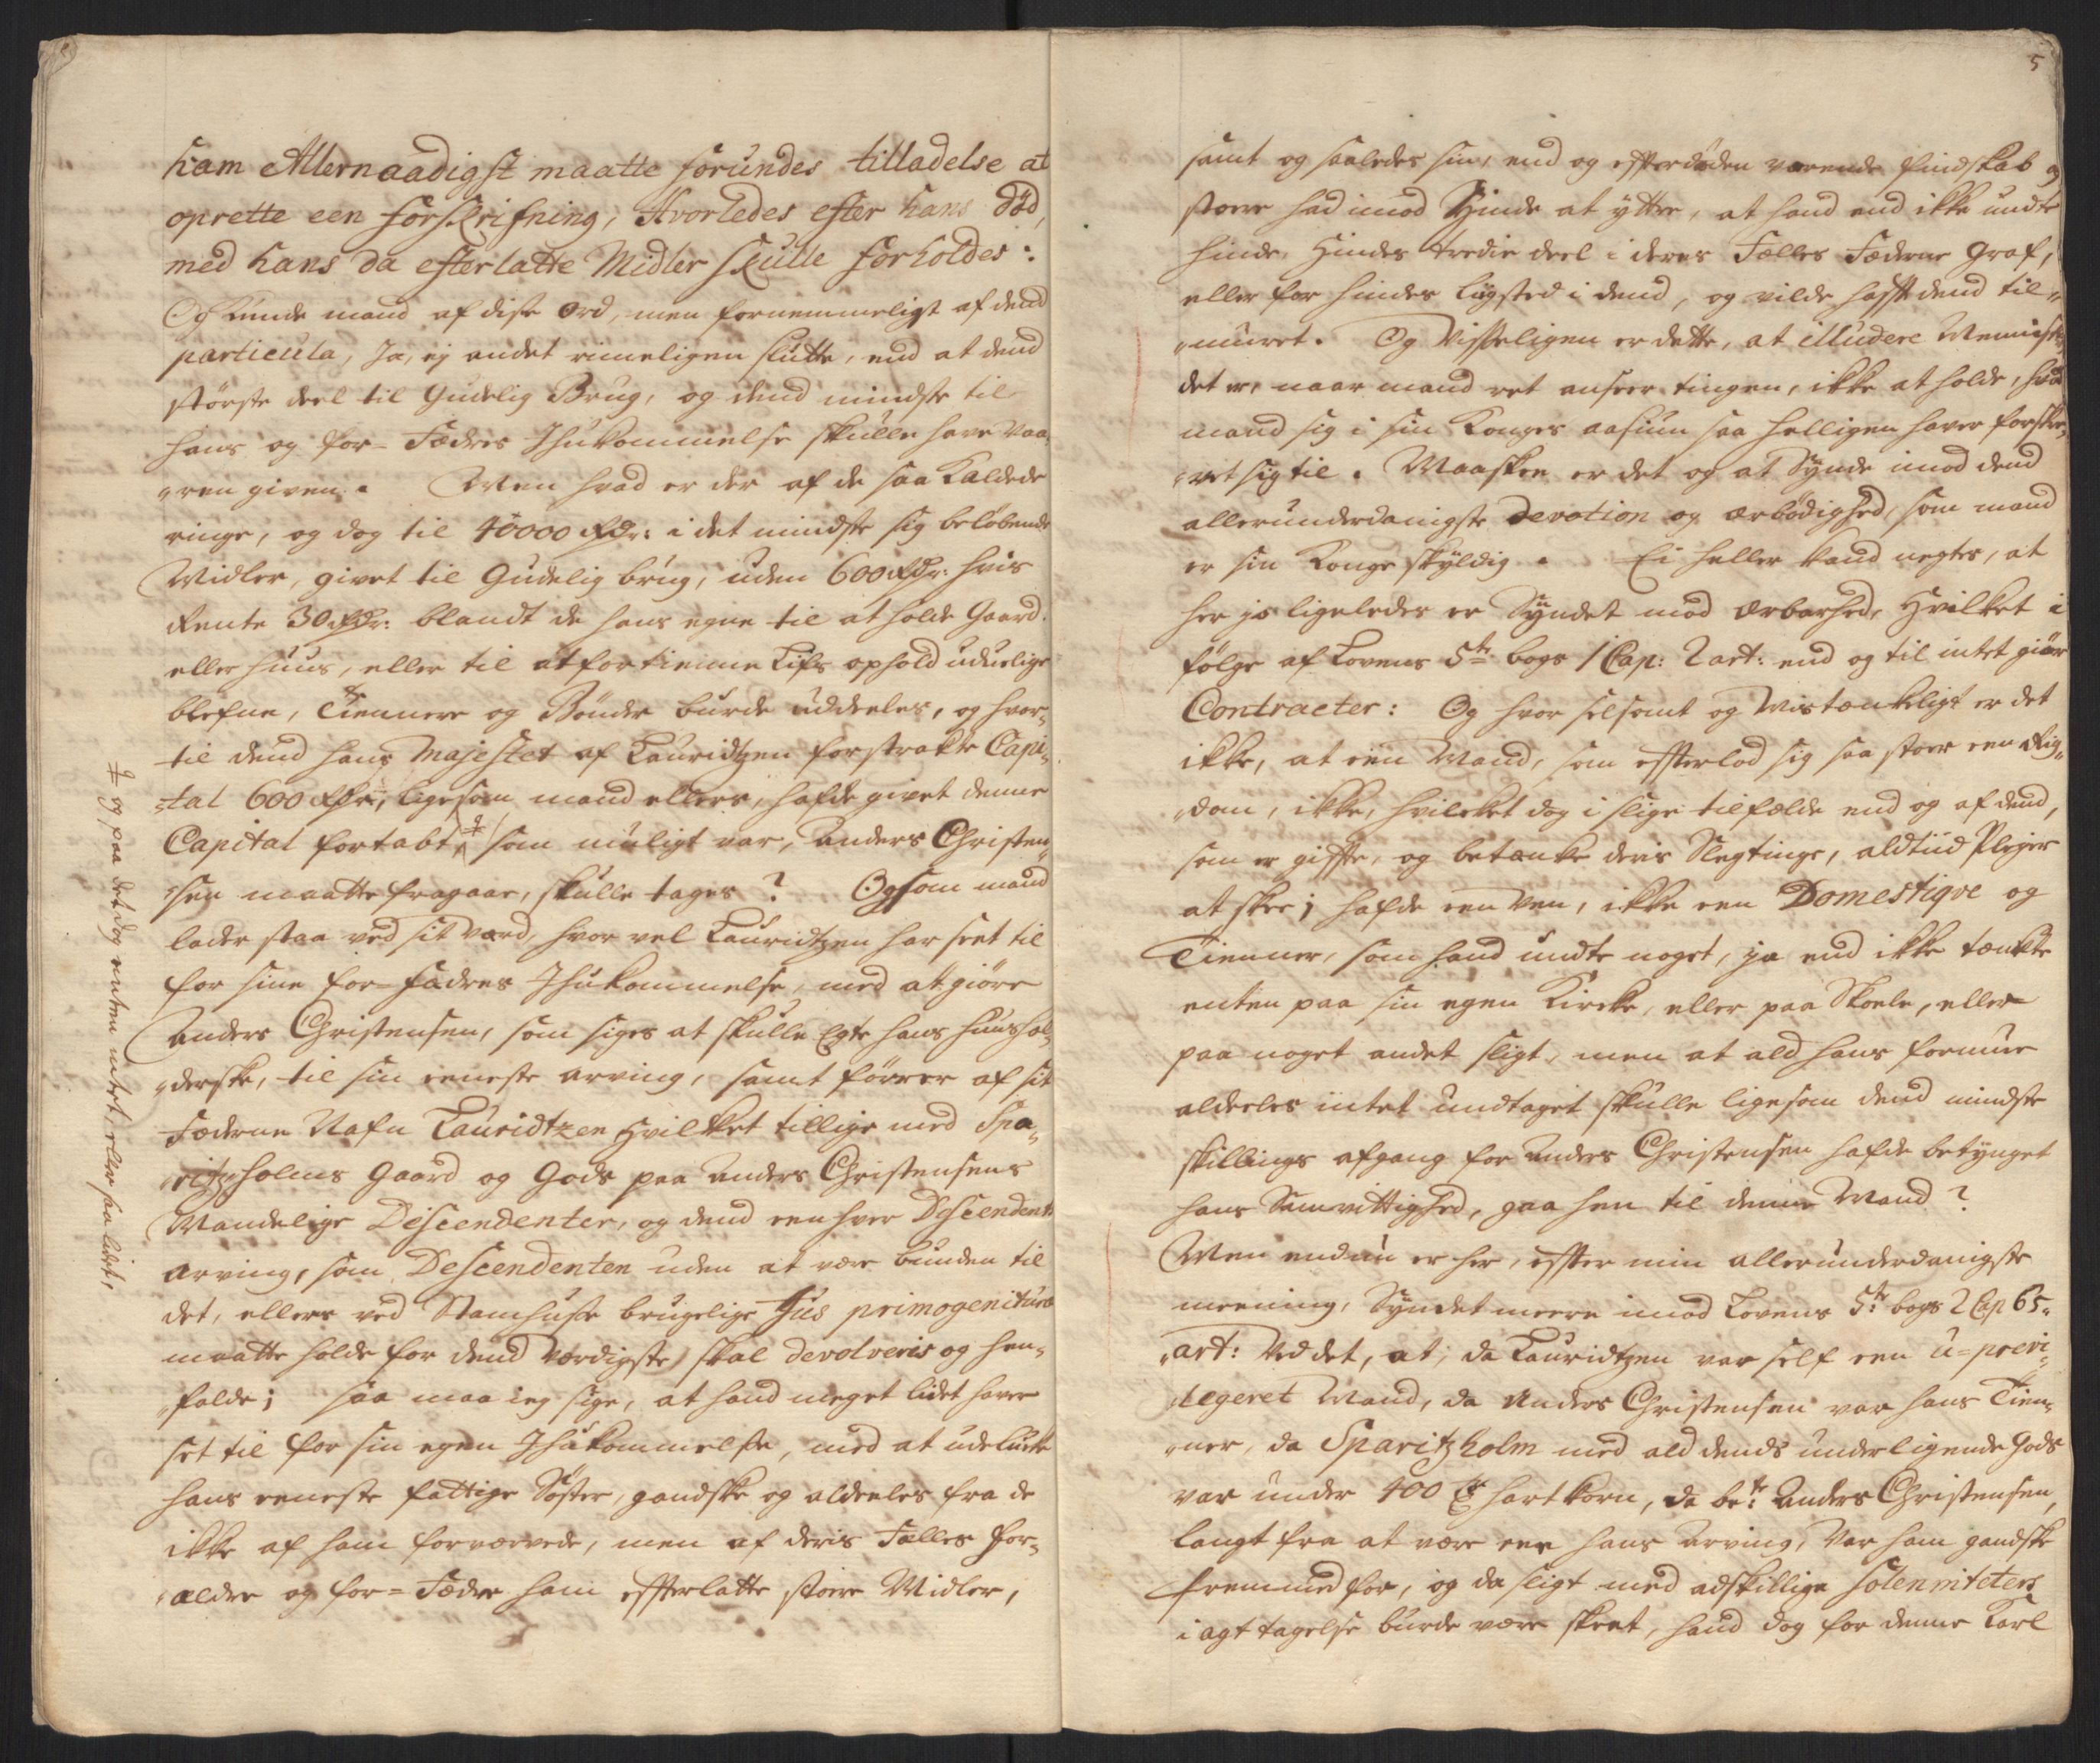 ham Allernaadigst maatte forundes tilladelse at
oprette een forskrifning, Hvorledes efter hans död,
med hans da efterlatte Midler skulle forholdes:
Og kunde mand af disse ord, men fornemmeligst af dend
particula, Ja, ej andet rimeligen slutte, end at dend
störste deel til Gudelig Brug, og dend mindste til
hans og for-Fædres Jhukommelse skulle have vaa-
ren given. Men hvad er der af de saa kaldede
ringe, og dog til 40000 Rdr: i det mindste sig belöbende
Midler, givet til Gudelig brug, uden 600 Rdr: hvis
Rente 30 Rdr: blandt de hans egne til at holde Gaard
eller huus, eller til at fortienne Lifs ophold uduelige
blefne, Tiennere og Bönder burde uddeeles, og hvor-
til dend hans Majestet af Lauridtzen forstrakte Capi-
tal 600 Rdr, ligesom mand ellers, hafde givet denne
Capital fortabt som muligt var, Anders Christen-
sen maatte fragaae, skulle tages? Og som mand
lader staa ved sit værd, hvor vel Lauridtzen har seet til
for sine for-fædres Jhukommelse, med at giöre
Anders Christensen, som siges at skulle Egte hans huushol-
derske, til sin eeneste arving, samt förrer af sit
Fæderne Nafn Lauridtzen hvilket tillige med Spa-
ritzholms Gaard og Gods paa Anders Christensens
Mandelige Descendenter, og dend een hver Descendents
arving, som Descendenten uden at være bunden til
det, ellers ved Stamhuse brugelige Jus primogenituræ
maatte holde for dend værdigste, skal devolveris og hen-
falde; saa maa ieg sige, at hand meget lidet haver
set til for sin egen Jhukommelse, med at udelucke
hans eeneste fattige Söster, gandske og aldeeles fra de
ikke af ham forværvede, men af deris Fælles for-
ældre og for-Fædre ham effterlatte store Midler,
og paa det dog enten intet, eller saa lidet,
5
samt og saaledes sin, end og effter döden varende findskab og
store had imod Hinde at yttre, at hand end ikke undte
hinde, Hindes tredie deel i deres Fælles Fæderne Graf,
eller for hindes liigsted i dend, og vilde hafft dend til-
muuret. Og Visseligen er dette, at illudere Mennisker,
det er, naar mand ret anseer tingen, ikke at holde, hvad
mand sig i sin Konges aasiun saa helligen haver forskre-
vet sig til. Maaskee er det og at Synde imod dend
allerunderdanigste Devotion og ærbödighed, som mand
er sin Konge skyldig. Ei heller kand negtes, at
her jo ligeledes er Syndet mod Ærbarhed, hvilket i
fölge af Lovens 5te bogs 1 Cap: 2 art: end og til intet giör
Contracter: Og hvor selsomt og Mistænkeligt er det
ikke, at een Mand, som effterlod sig saa stoer een Rig-
dom, ikke, hvilcket dog i slige tilfælde end og af dend,
som er giffte, og betænke deris Slegtinge, aldtiid Plejer
at skee; hafde een Ven, ikke een Domestiqve og
Tienner, som hand undte noget, ja end ikke tænkte
enten paa sin egen Kircke, eller paa Skoele, eller
paa noget andet sligt, men at ald hans formue
aldeeles intet undtaget skulle ligesom dend mindste
skillings afgang for Anders Christensen hafde betynget
hans Samvittighed, gaa hen til denne Mand?
Men endnu er her, effter min allerunderdanigste
meening, Syndet meere imod Lovens 5te bogs 2 Cap 65-
art: Ved det, at, da Lauridtzen var self een u-previ-
legeret Mand, da Anders Christensen var hans Tien-
ner, da Sparitzholm med ald dends underligende Gods
var under 400 hartkorn, da bete Anders Christensen,
langt fra at være een hans arving, var ham gandske
fremmed for, og da sligt med adskillige Solenniteters
iagttagelse burde være skeet, hand dog for denne Karl